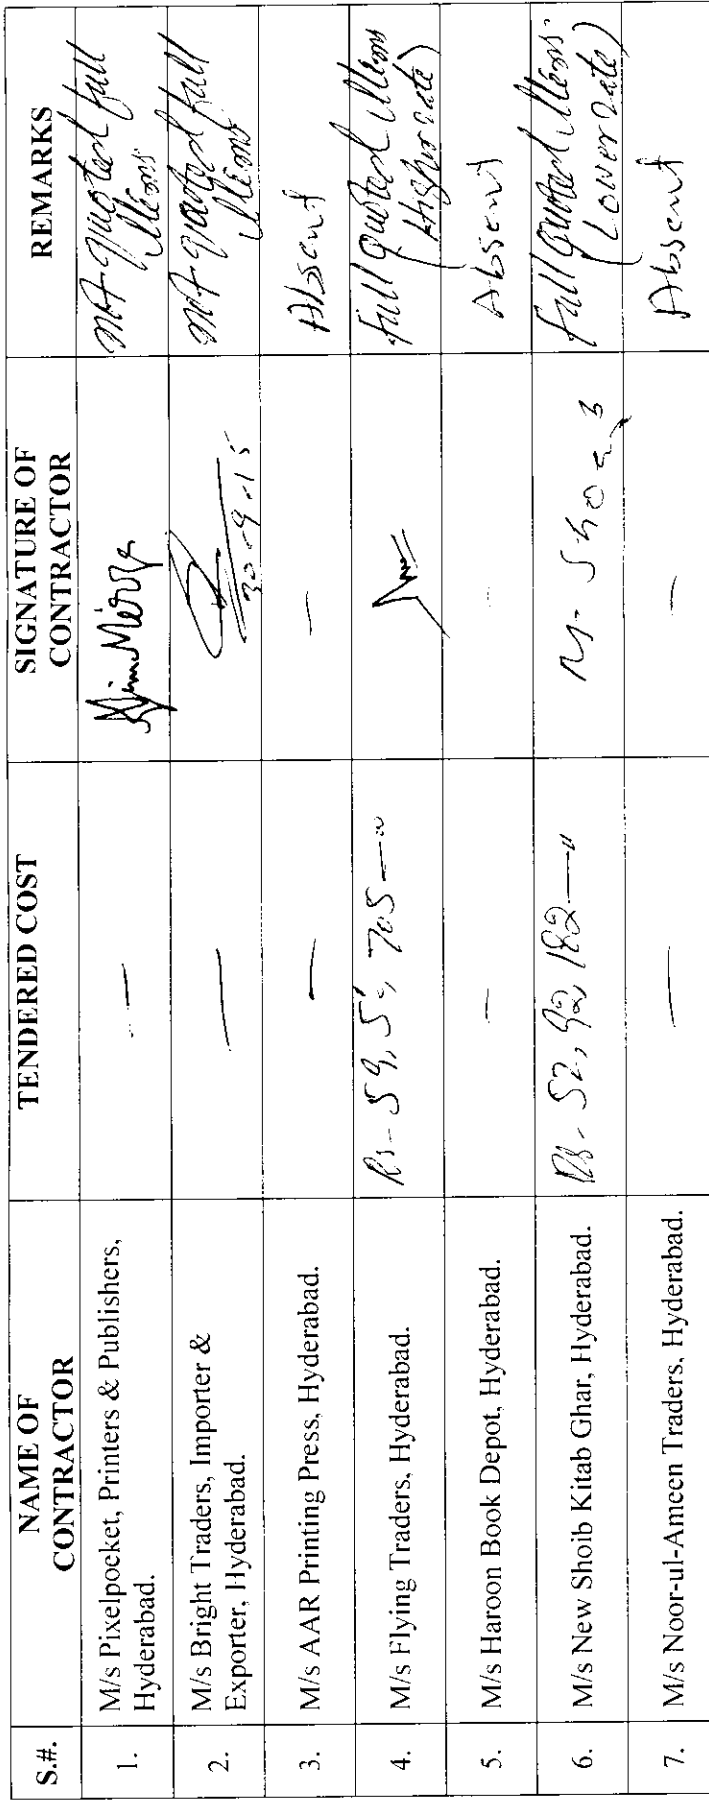 S.#.
NAME OF CONTRACTOR
TENDERED COST
SIGNATURE OF CONTRACTOR
REMARKS
1.
M/s Pixelpocket, Printers & Publishers,
Hyderabad.
—
not quoted full
items
2.
M/s Bright Traders, Importer &
Exporter, Hyderabad.
—
30-9-15
not quoted full
items
3.
M/s AAR Printing Press, Hyderabad.
—
—
Absent
4.
M/s Flying Traders, Hyderabad.
Rs- 59,55,705—
full quoted items
(Higher rate)
5.
M/s Haroon Book Depot, Hyderabad.
—
Absent
6.
M/s New Shoib Kitab Ghar, Hyderabad.
Rs- 52,92,182—
M. Shoaib
full quoted items
(Lower rate)
7.
M/s Noor-ul-Ameen Traders, Hyderabad.
—
—
Absent